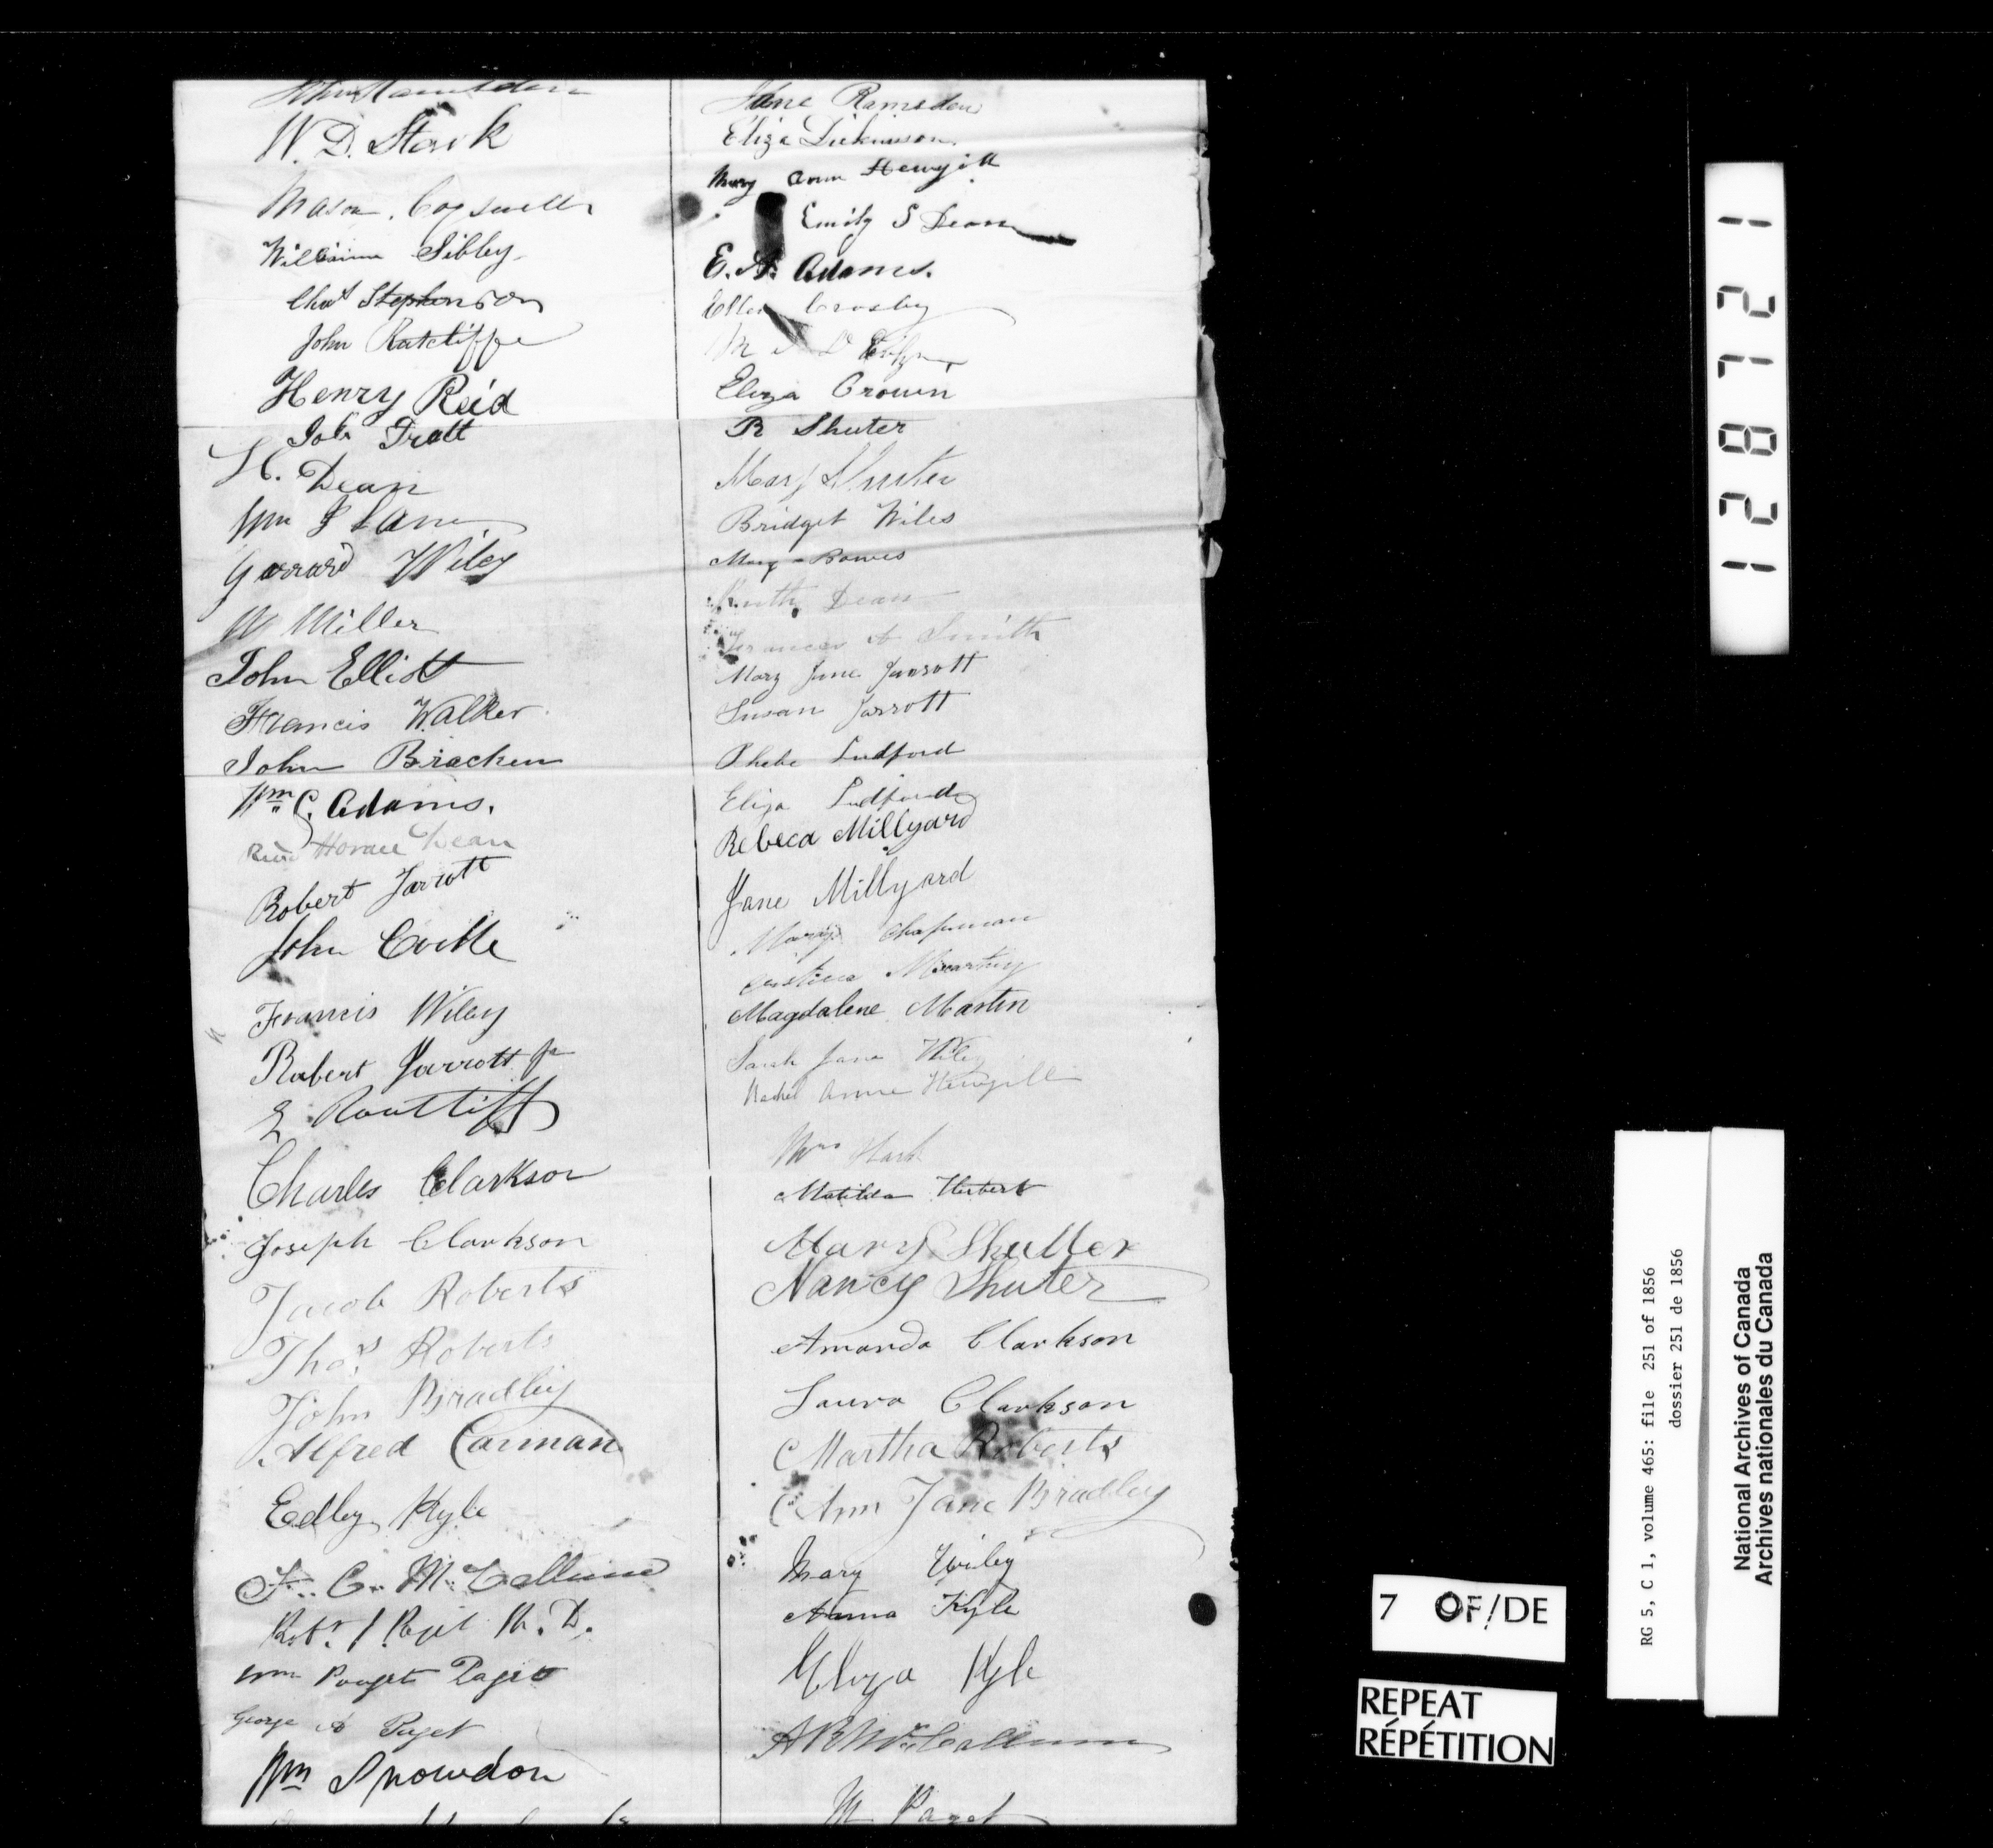 Ramsden
W. D. Stark
Mason Cogswell
William Sibley
Chas Stephenson
John Ratcliffe
Henry Reid
Job Tratt
H. Dean
Wm
Garrard Wiley
W Miller
John Elliott
Francis Walker
John Bracken
Wm C. Adams.
Horace Dean
Robert Jarrott
John Coville
Francis Wiley
Robert Jarrott Jr
E Routliff
Charles Clarkson
Joseph Clarkson
Jacob Roberts
Thos Roberts
John Bradley
Alfred Carman
Edley Kyle
F. C. McCallum
Robt. M. D.
Wm Pouget Paget
George A Paget
Wm Snowdon
Jane Ramsden
Eliza Dickinson
Mary Ann Hewgill
Emily S Dean
E. A. Adams.
Ellen Crosby
M
Eliza Crown
R Shuter
Mary Shuter
Bridget Wiles
Mary Bowes
Ruth Dean
Frances A Smith
Mary Jane Jarrott
Susan Jarrott
Phebe Ludford
Eliza Ludford
Rebeca Millyard
Jane Millyard
Mary Chapman
Mcarthy
Magdalene Martin
Sarah Jane Wiley
Rachel Anne Hewgill
Mrs Stark
Matilda Herbert
Mary Shutter
Nancy Shuter
Amanda Clarkson
Laura Clarkson
Martha Roberts
Ann Jane Bradley
Mary Wiley
Anna Kyle
Eliza Kyle
A B McCallum
M Paget
128721
RG 5, C 1, volume 465: file 251 of 1856
dossier 251 de 1856
National Archives of Canada
Archives nationales du Canada
7 OF/DE
REPEAT
RÉPÉTITION